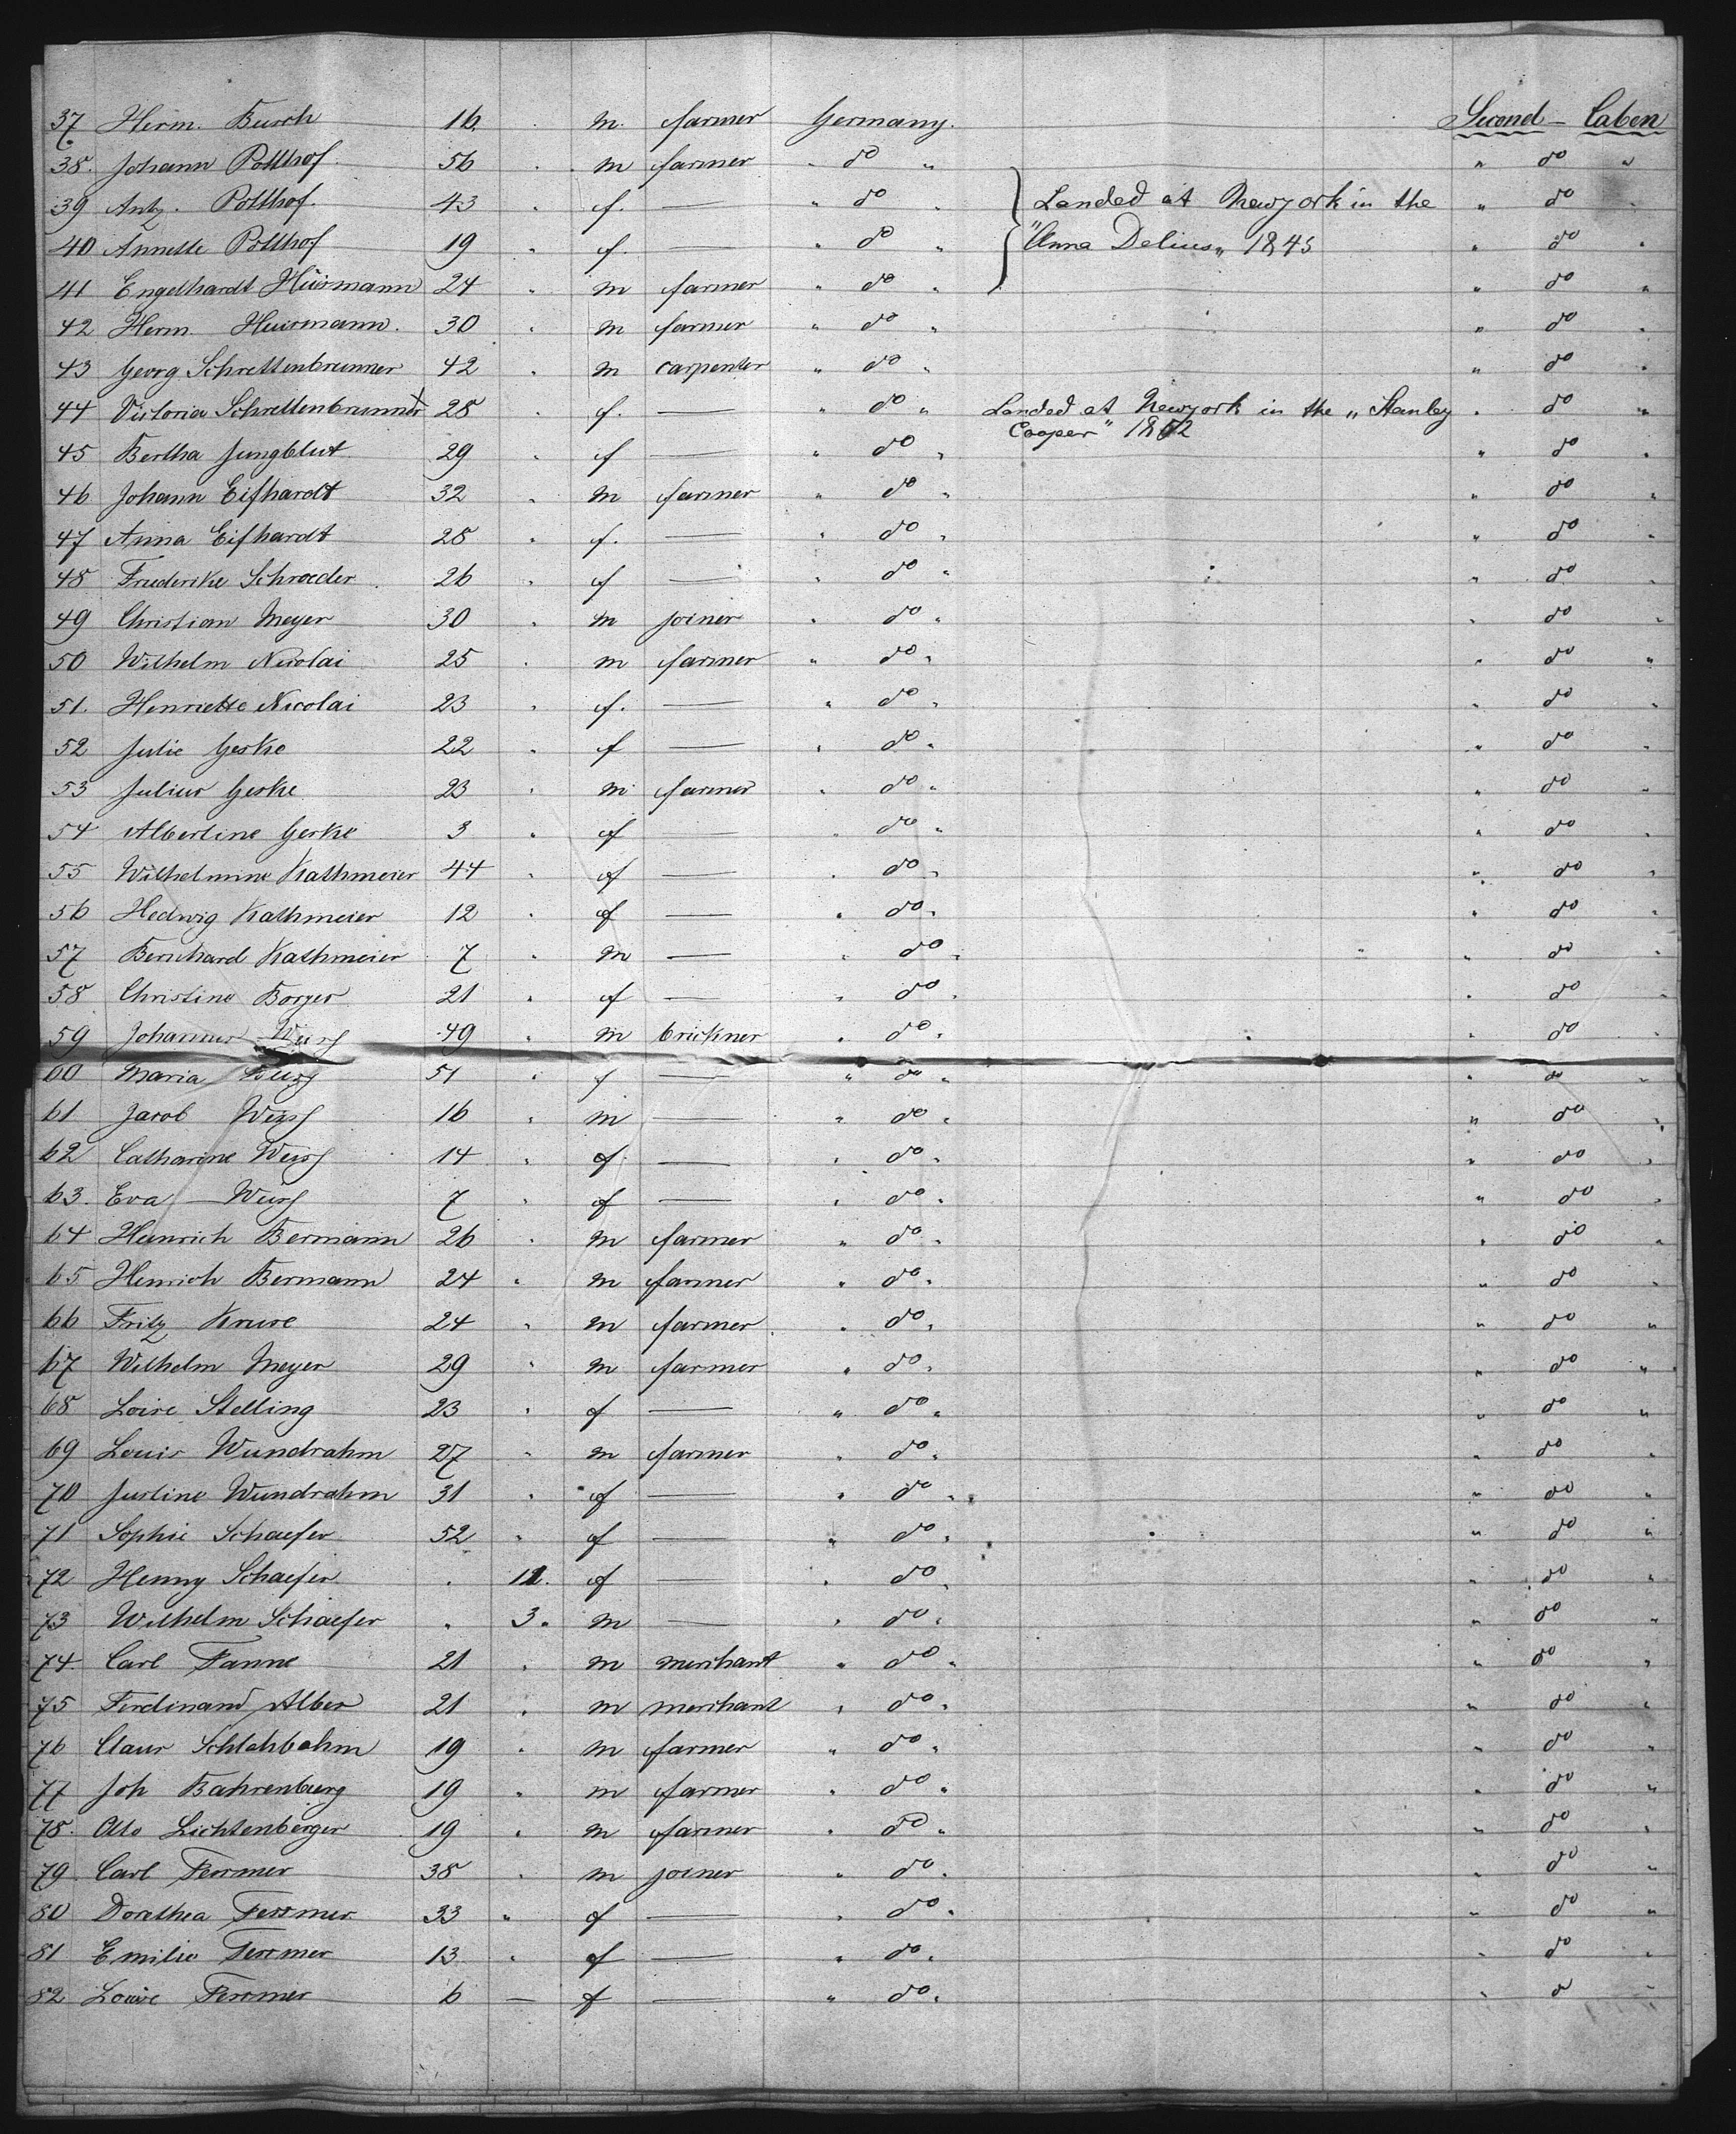 37 Herm. Busch 16 . m. farmer Germany. Second - Caben
38. Johann Potthof 56 . m farmer " do " " do "
39 Antz. Potthof. 43 . f. — " do " Landed at Newyork in the " do "
40 Annette Potthof 19 . f. — " do " "Anna Delius" 1845 " do "
41 Engelhardt Hüsmann 24 " m farmer " do " " do "
42 Herm. Huismann. 30 " m farmer " do " " do "
43 Georg Schrettenbrunner 42 " m carpenter " do " " do "
44 Victoria Schrettenbrunner 28 " f. — " do " Landed at Newyork in the „Stanley " do "
Cooper" 1862
45 Bertha Jungblut 29 " f — " do " " do "
46 Johann Eifhardt 32 " m farmer " do " " do "
47 Anna Eifhardt 28 " f. — " do " " do "
48 Friederike Schroeder 26 " f — " do " " do "
49 Christian Meyer 30 " m joiner " do " " do "
50 Wilhelm Nicolai 25 " m farmer " do " " do "
51. Henriette Nicolai 23 " f. — " do " " do "
52 Julie Geske 22 " f — " do " " do "
53 Julius Geske 23 " m farmer " do " " do "
54 Albertine Geske 3 " f — " do " " do "
55 Wilhelmine Kathmeier 44 " f — " do " " do "
56 Hedwig Kathmeier 12 " f — " do " " do "
57 Bernhard Kathmeier 7 " m — " do " " do "
58 Christine Borger 21 " f — " do " " do "
59 Johannes 49 " m brickner " do " " do "
60 Maria 51 " f — " do " " do "
61 Jacob 16 " m — " do " " do "
62 Catharine 14 " f — " do " " do "
63. Eva 7 " f — " do " " do "
64 Heinrich Bermann 26 " m farmer " do " " do "
65 Heinrich Bermann 24 " m farmer " do " " do "
66 Fritz Kruse 24 " m farmer " do " " do "
67 Wilhelm Meyer 29 " m farmer " do " " do "
68 Loise Stelling 23 " f — " do " " do "
69 Louis Wundrahm 27 " m farmer " do " " do "
70 Justine Wundrahm 31 " f — " do " " do "
71 Sophie Schaefer 52 " f — " do " " do "
72 Henny Schaefer " 11. f — " do " " do "
73 Wilhelm Schaefer " 3 " m — " do " " do "
74. Carl Fanne 21 " m merchant " do " " do "
75 Ferdinand Alber 21 " m merchant " do " " do "
76 Claus Schlahbohm 19 " m farmer " do " " do "
77 Joh Bahrenburg 19 " m farmer " do " " do "
78. Otto Lichtenberger 19 " m farmer " do " " do "
79. Carl Fessmer 38 " m joiner " do " " do "
80 Dorethea Fessmer 33 " f — " do " " do "
81 Emilie Fessmer 13 " f — " do " " do "
82 Louise Fessmer 6 — f — " do " " do "